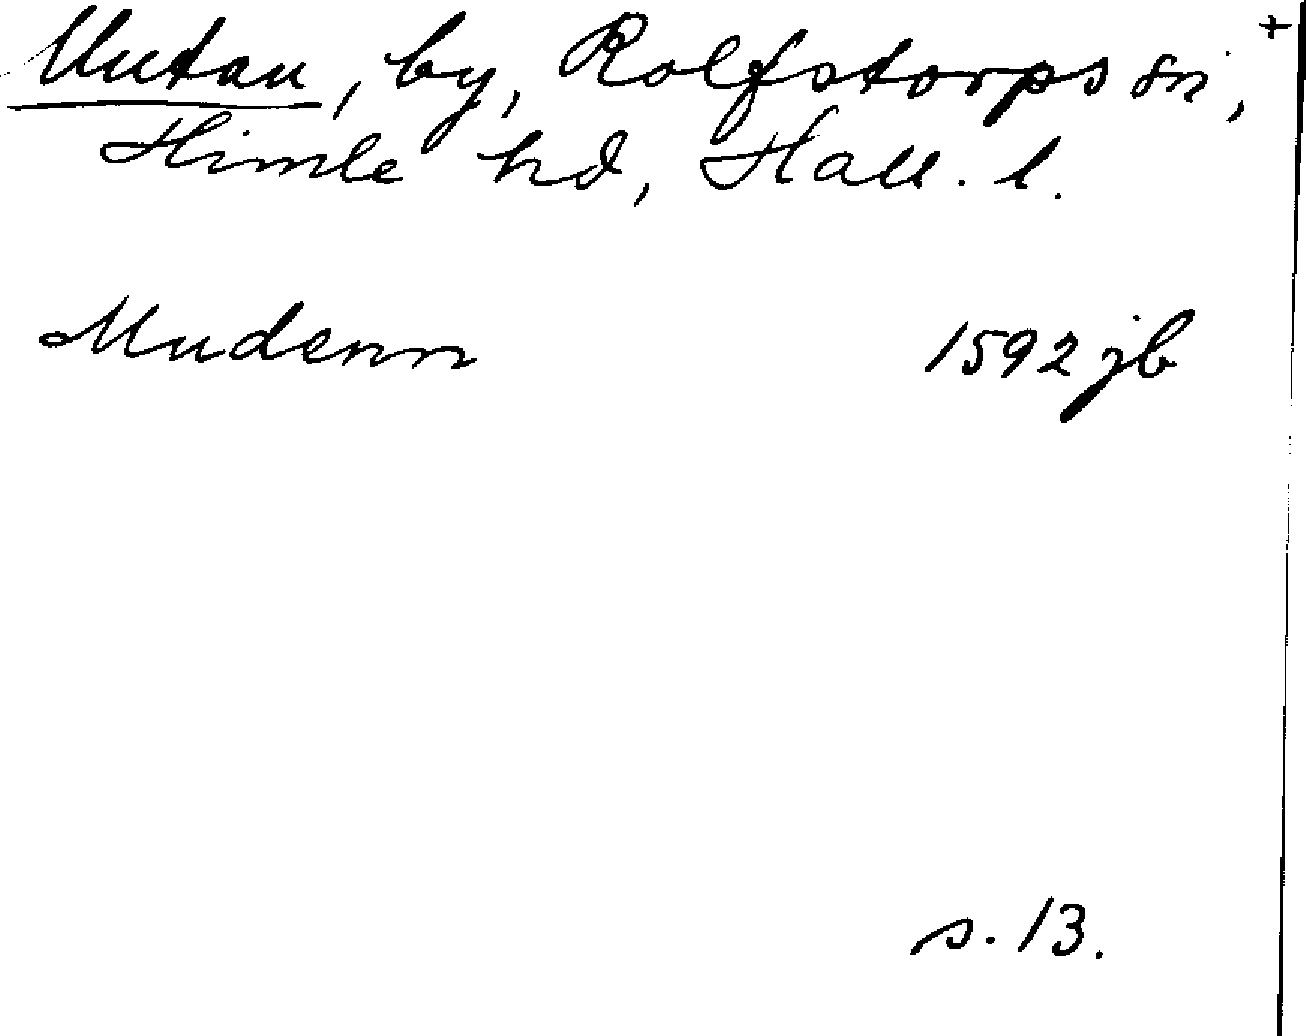 Mutan, by, Rolfstorps sn, +
Himle hd, Hall. l.
Mudenn 1592 jb
s. 13.